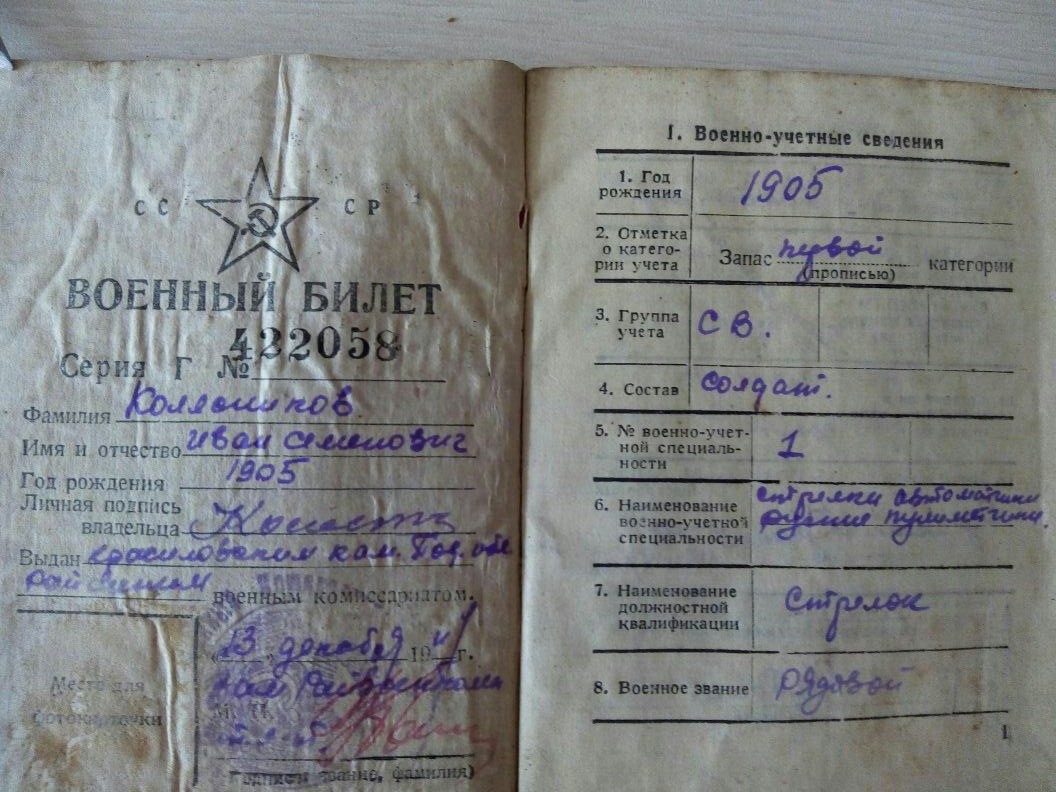 СС СР
ВОЕННЫЙ БИЛЕТ
Серия Г № 422058
Фамилия Колясников
Имя и отчество Иван Семенович
Год рождения 1905
Личная подпись
владельца
Выдан Красиловским Кам. Под. обл
райским военным комиссариатом.
Место для
фотокарточки
„23 „ декабря 194 г.
М. П.
Подпись звание, фамилия)
I. Военно-учетные сведения
1. Год
рождения 1905
2. Отметка
о катего-
рии учета Запас первой категории
(прописью)
3. Группа
учета СВ.
4. Состав солдат.
5. № военно-учет-
ной специаль-
ности 1
6. Наименование
военно-учетной
специальности стрелки автоматчики
ручные пулиметчики.
7. Наименование
должностной
квалификации Стрелок
8. Военное звание рядовой
1